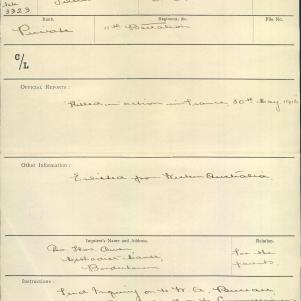 3323
Rank
Regiment, &c.
File No.
Private
11th Battalion
C/L
OFFICIAL REPORTS:
Killed in action in France, 30th May 1916
Other Information:
Enlisted from Western Australia.
Inquirer's Name and Address.
Relation.
Rev. Thos. Owen
Methodist Manse
for the
parents
Instructions:
Send Inquiry on to W. A. Bureau